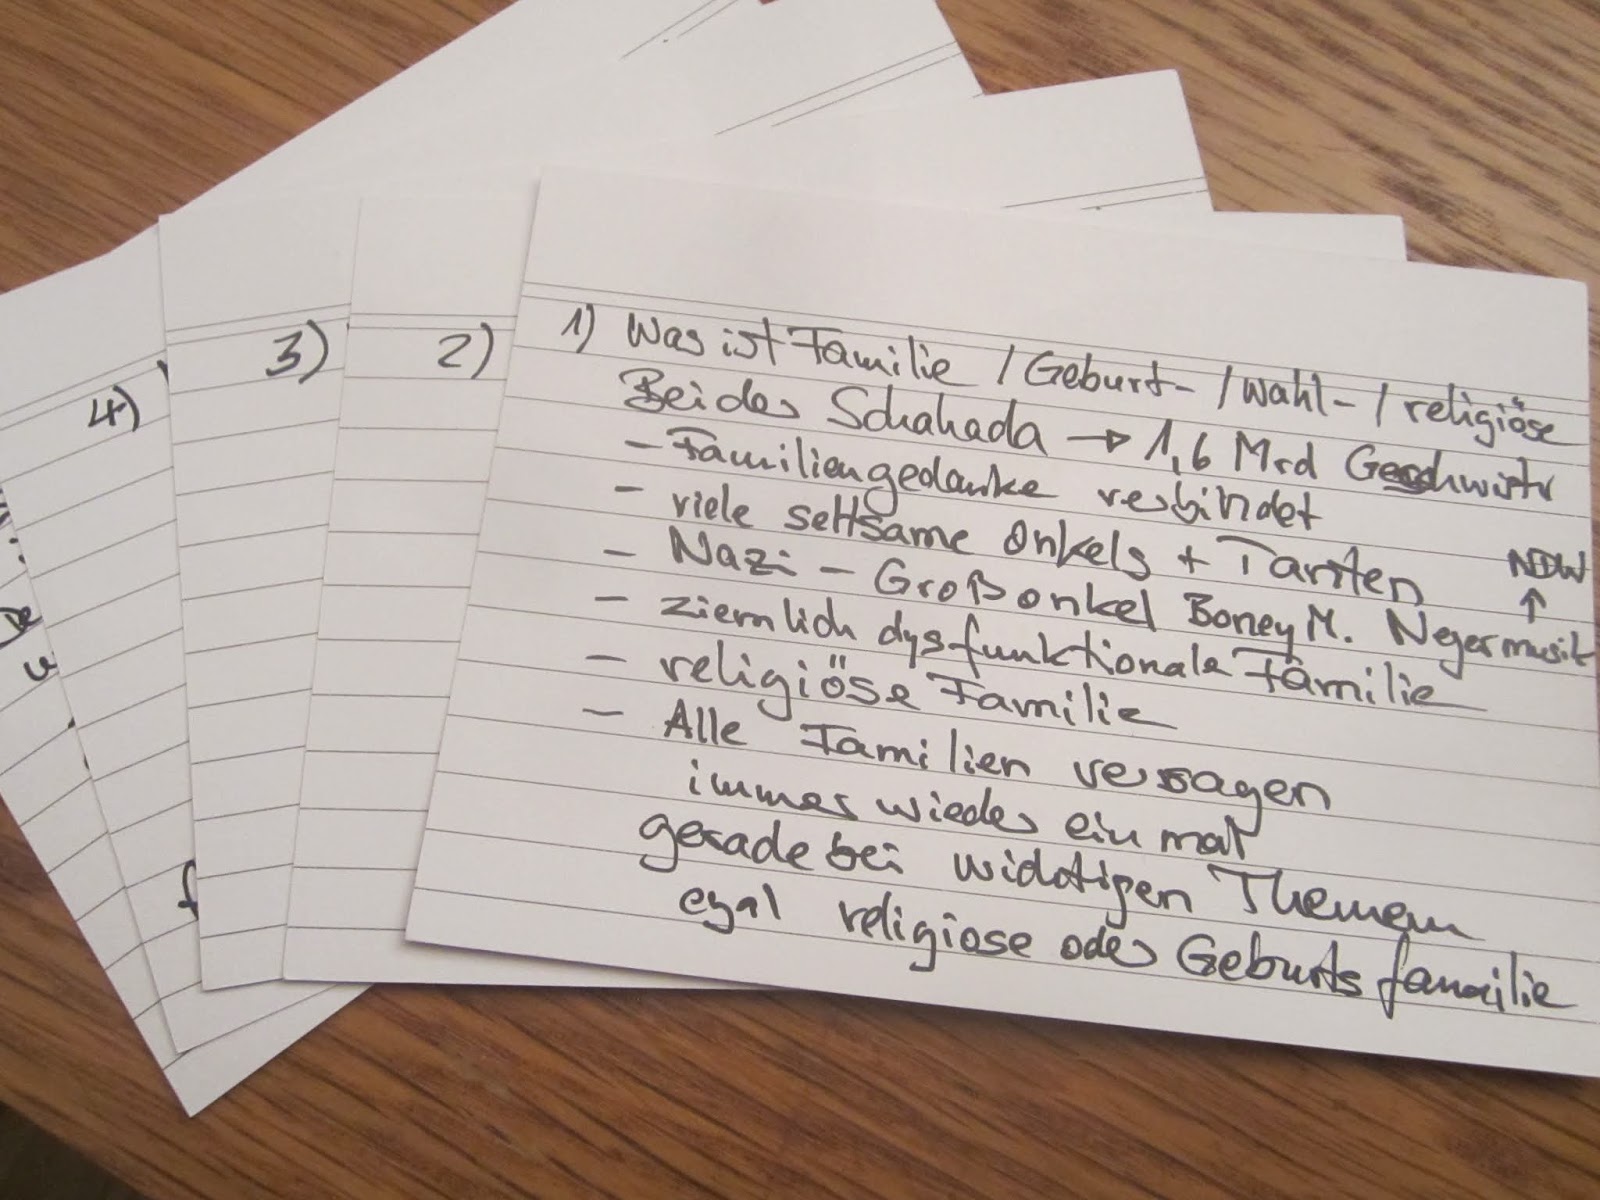 1) Was ist Familie / Geburt- / Wahl- / religiöse
Bei der Schahada → 1,6 Mrd Geschwister
- Familiengedanke verbindet
- viele seltsame Onkels + Tanten
NDW
↑
- Nazi - Großonkel Boney M. Negermusik
- ziemlich dysfunktionale Familie
- religiöse Familie
- Alle Familien versagen
immer wieder einmal
gerade bei wichtigen Themen
egal religiöse oder Geburtsfamilie
2)
3)
4)